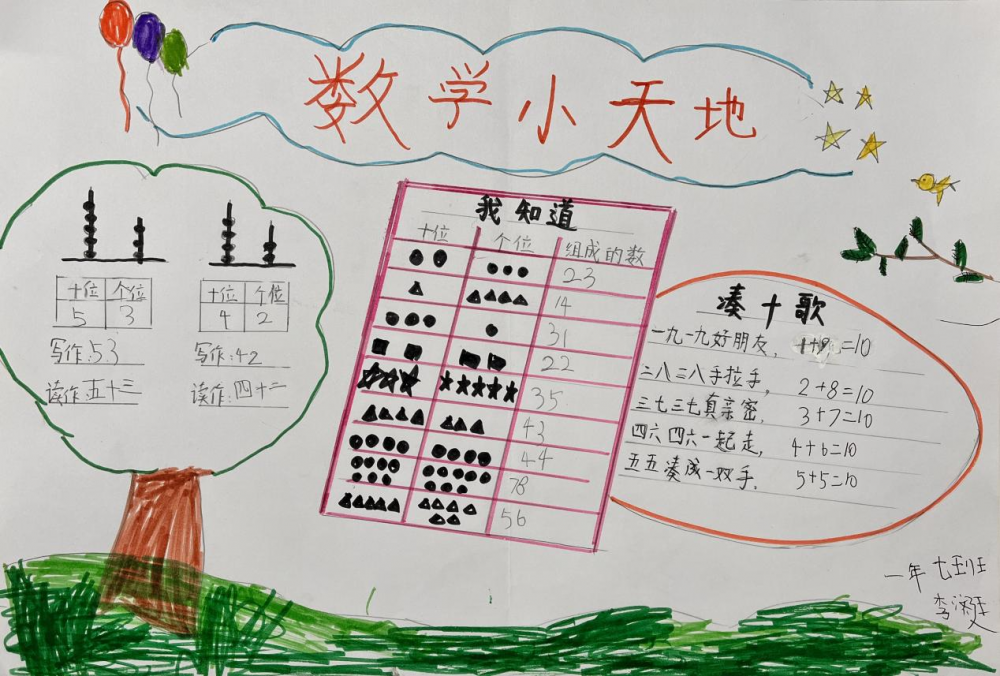 数学小天地
十位 个位
5 3
写作:53
读作:五十三
十位 个位
4 2
写作:42
读作:四十二
我知道
十位 个位 组成的数
23
14
31
22
35
43
44
78
56
凑十歌
一九一九好朋友, 1+9=10
二八二八手拉手, 2+8=10
三七三七真亲密, 3+7=10
四六四六一起走, 4+6=10
五五凑成一双手. 5+5=10
一年七班